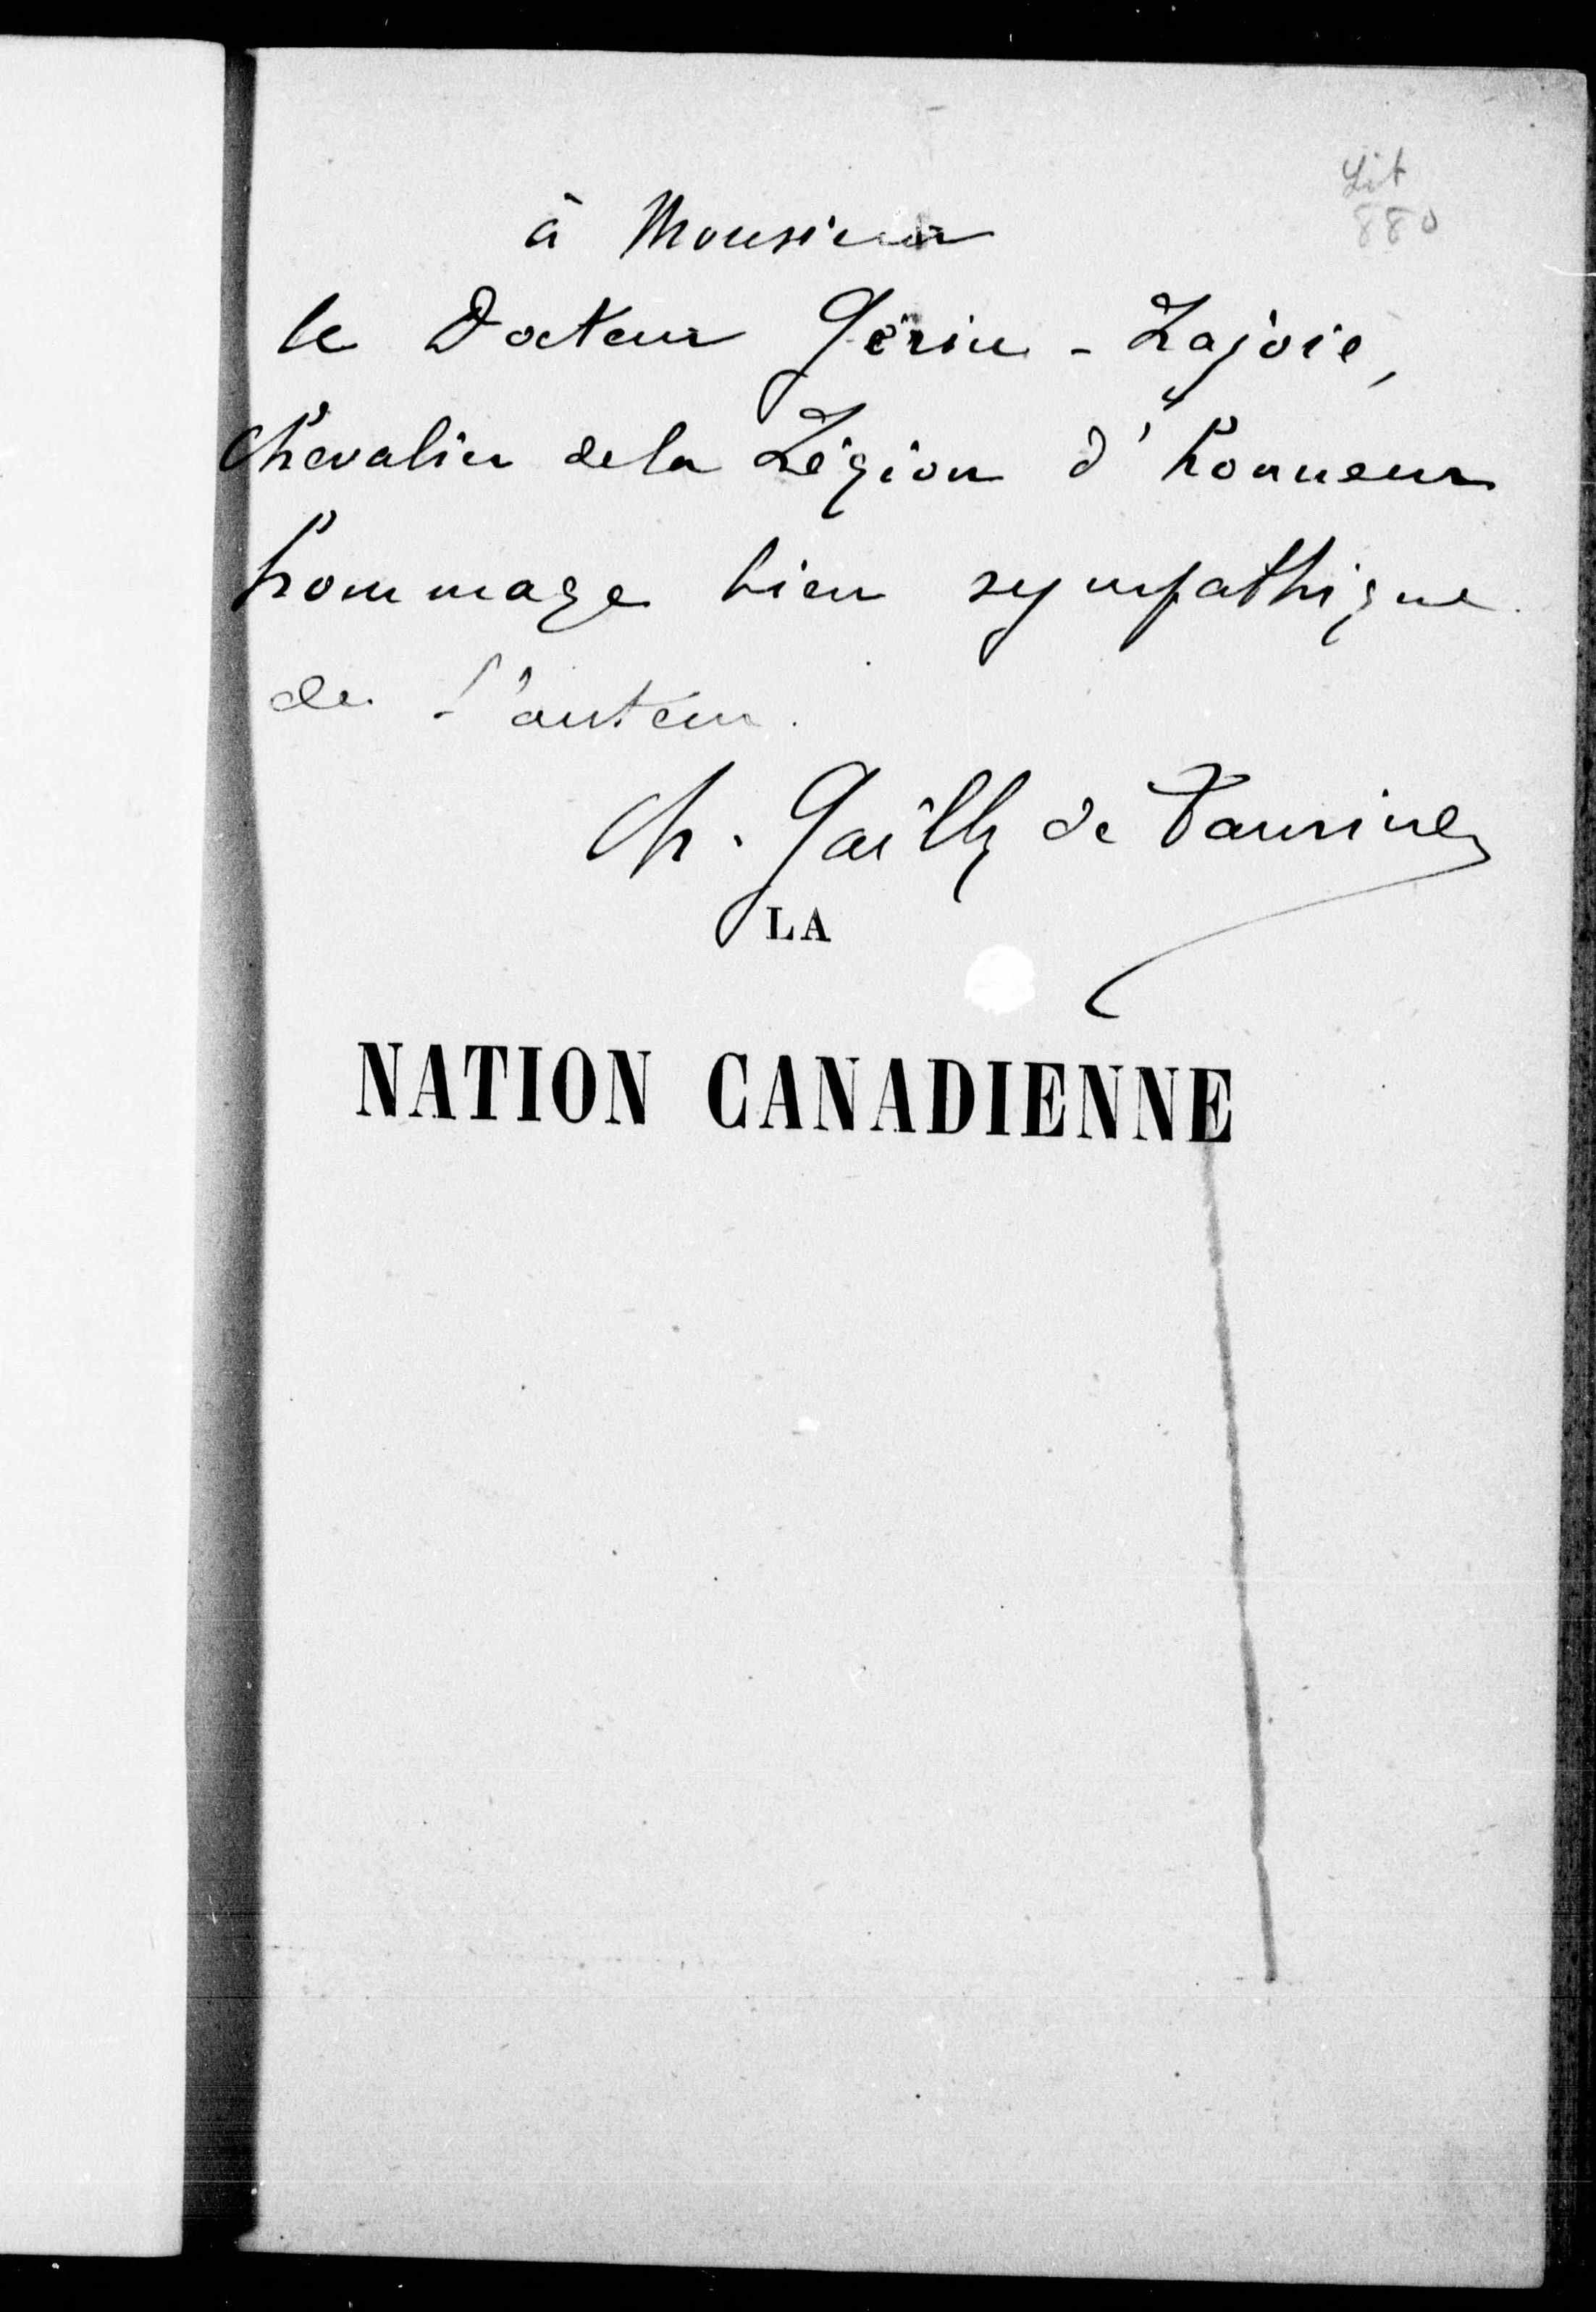 Lit
880
à Monsieur
le Docteur Gérin-Lajoie,
Chevalier de la Légion d'honneur
hommage bien sympathique
de l'auteur.
Ch. Gailly de Taurines
LA
NATION CANADIENNE